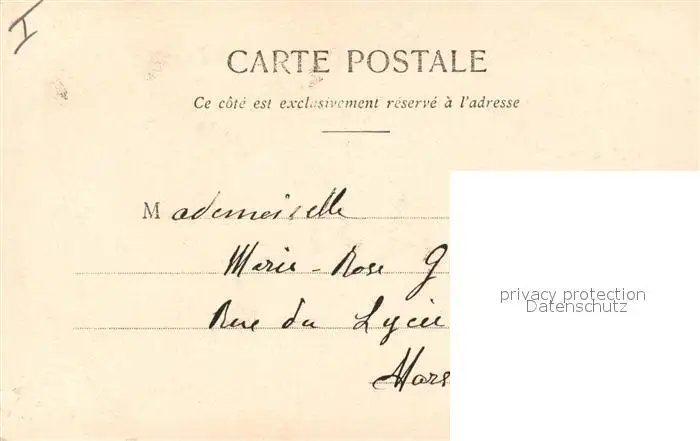 I
CARTE POSTALE
Ce côté est exclusivement réservé à l'adresse
Mademoiselle
Marie-Rose G
Rue du Lycée
Mars
privacy protection
Datenschutz